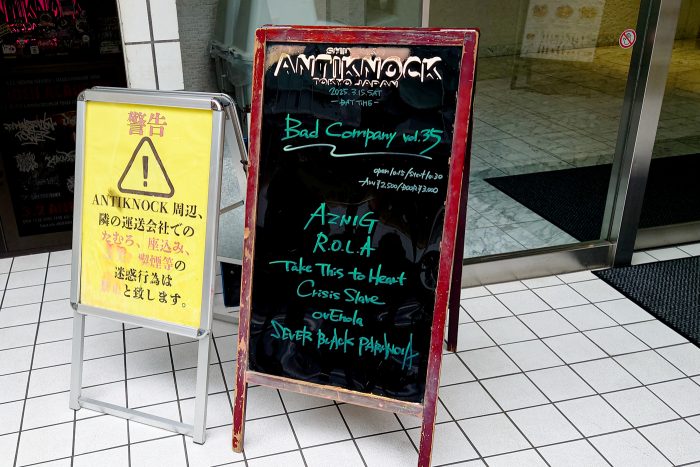 警告
ANTIKNOCK 周辺、
隣の運送会社での
たむろ、座込み、
喫煙等の
迷惑行為は
と致します。
ANTIKNOCK
TOKYO JAPAN
2025.3.15.SAT
-DAY TIME-
Bad Company vol.35
open10:15/start10:30
Adv¥2,500/DOOR¥3,000
AZNIG
R.O.L.A
Take This to Heart
Crisis Slave
ovEnola
SEVER BLACK PARANOIA